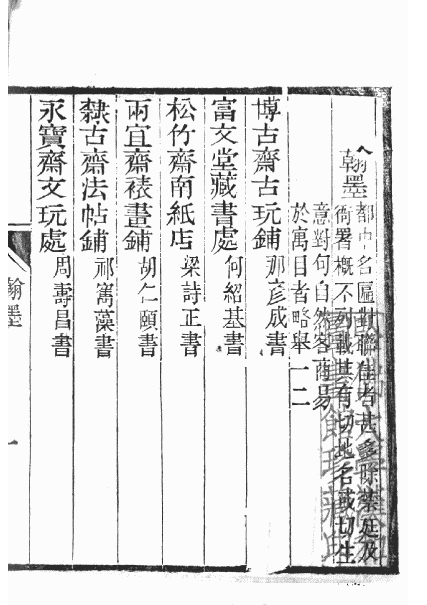 翰墨
都中名匾對聯佳者甚多除禁庭及
衙署概不列載其有切地名或切生
意對句自然客商易
於寓目者略舉一二
博古齋古玩鋪 那彥成書
富文堂藏書處 何紹基書
松竹齋南紙店 梁詩正書
兩宜齋裱畫鋪 胡仁頤書
隸古齋法帖鋪 祁寯藻書
永寶齋文玩處 周壽昌書
翰墨
一